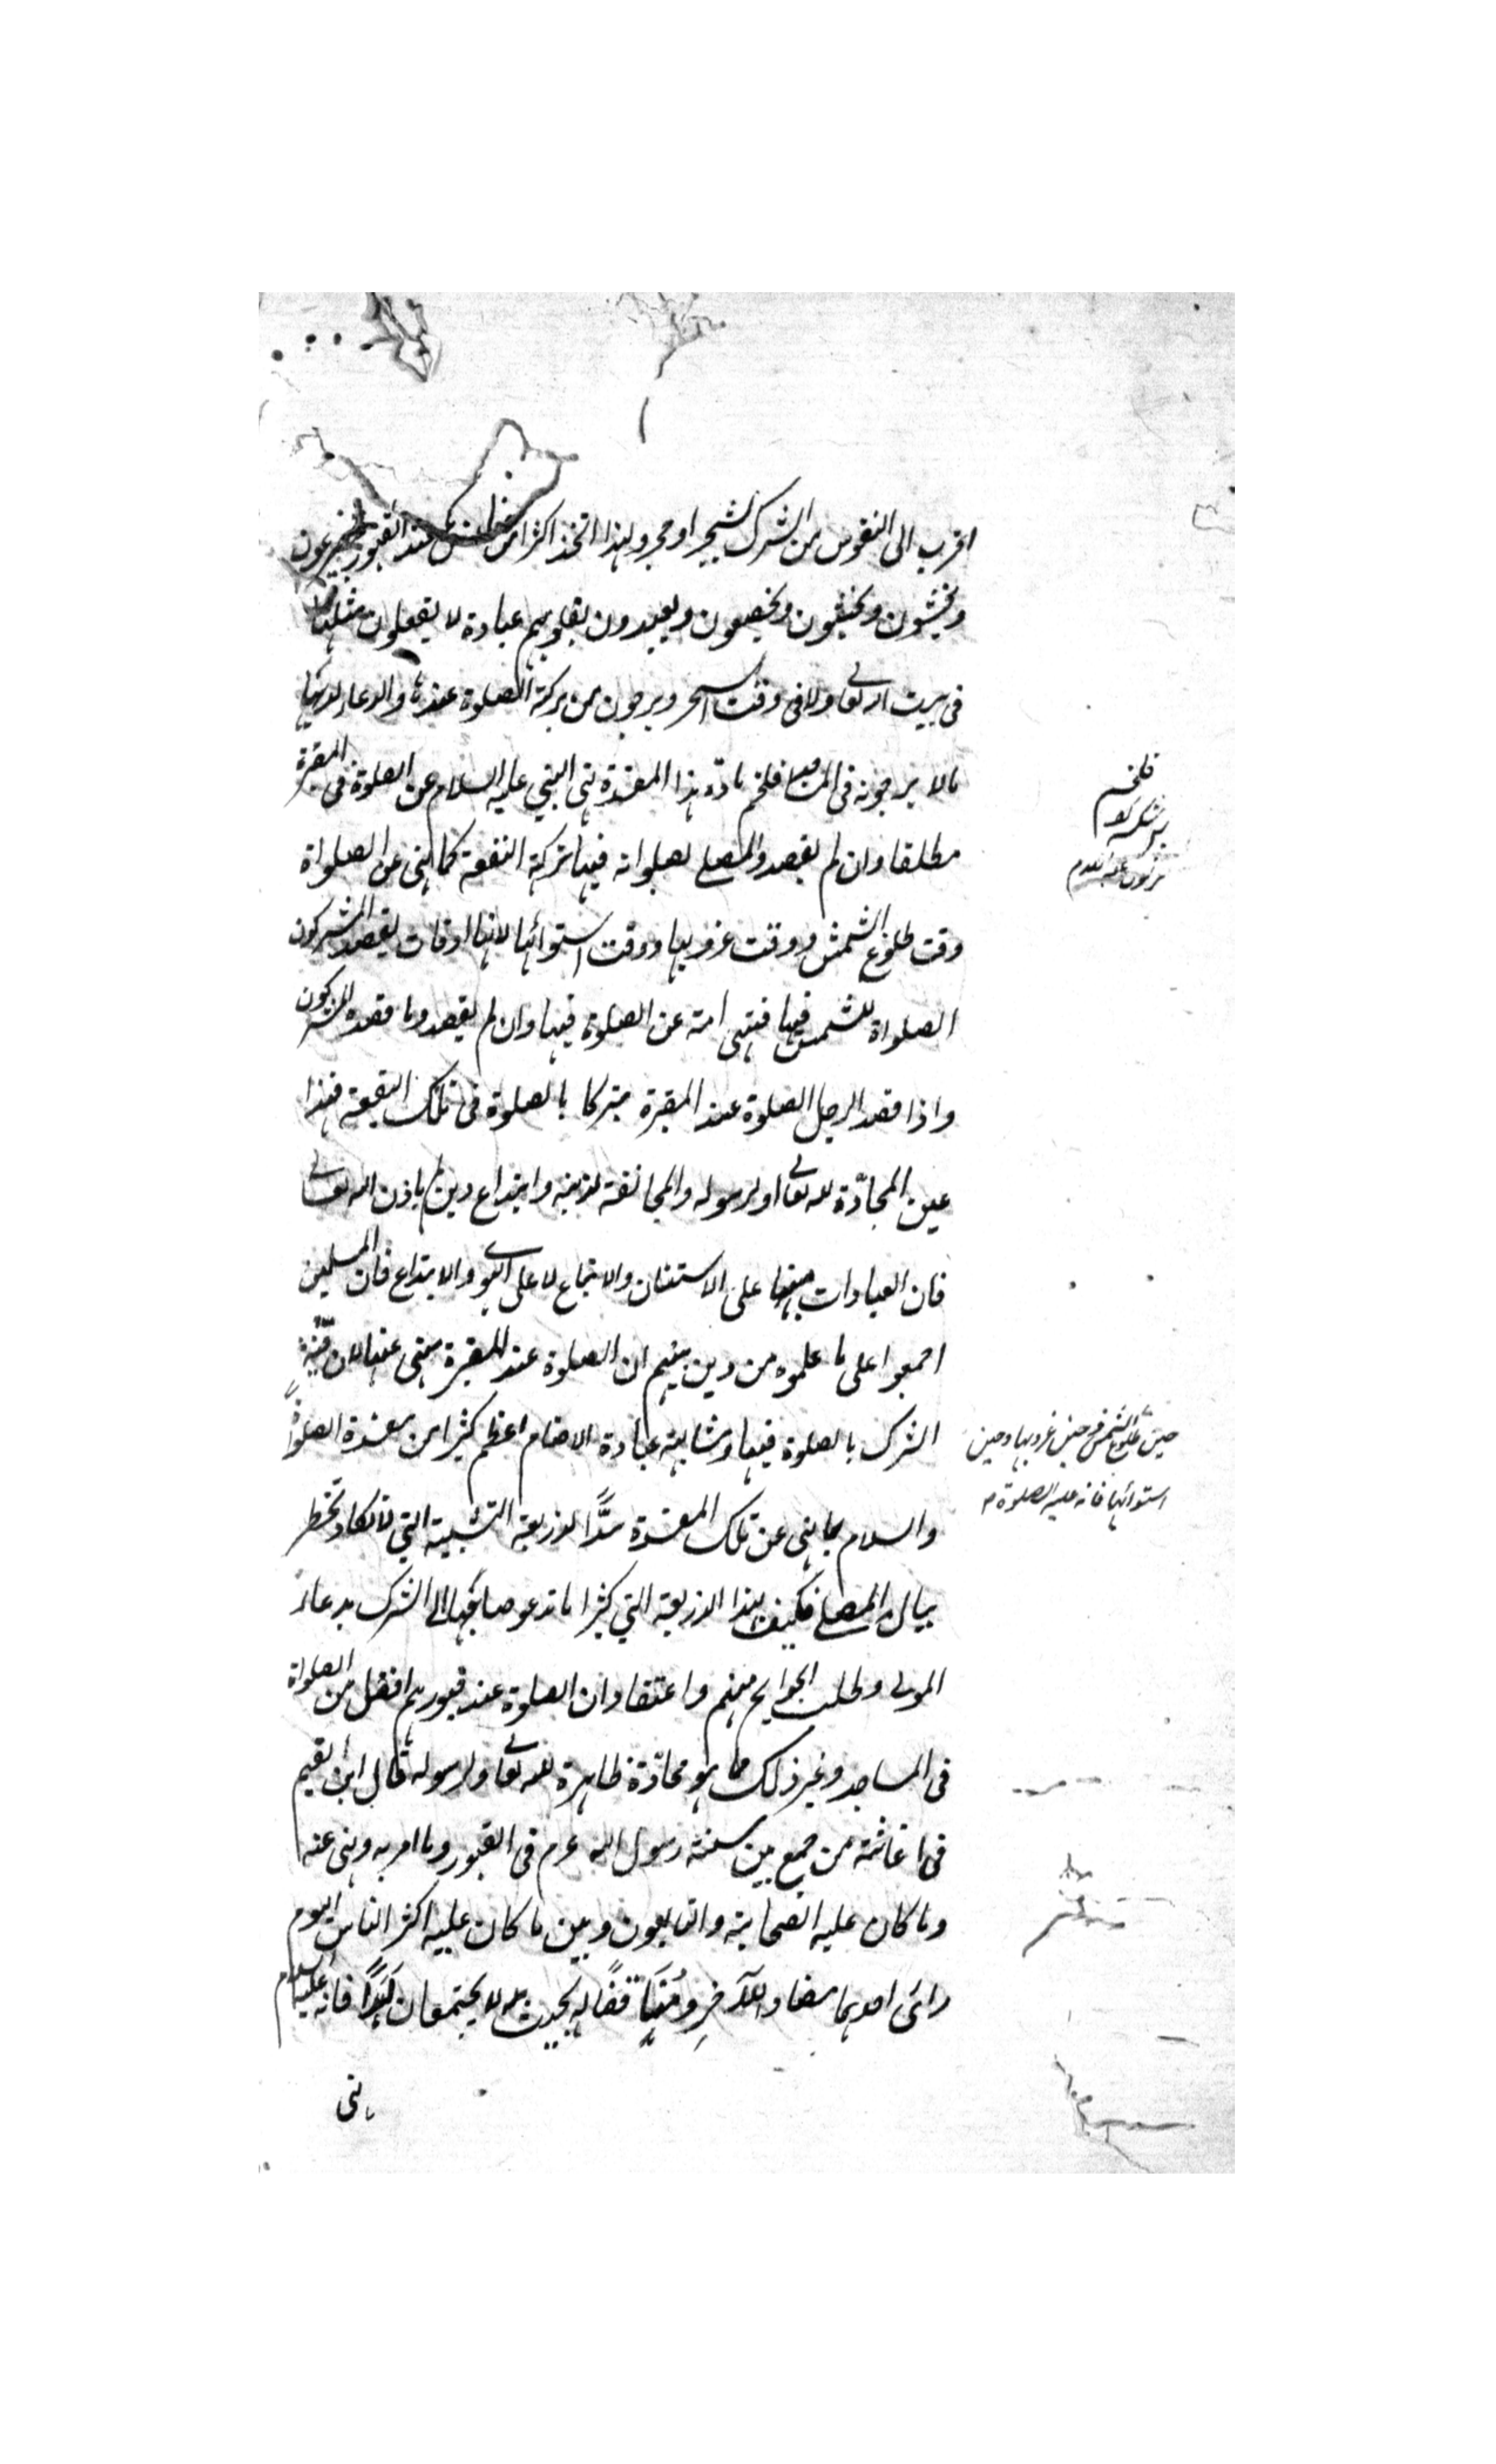 اقرب الى النفوس من الشرك لشجر او حجر ولهذا اتخذ اكثر الناس عند القبور يتضرعون
ويخشون ويخشعون ويخضعون ويعبدون بقلوبهم عبادة لا يفعلون مثلها
فى بيت الله تعا ولا فى وقت السحر ويرجون من بركة الصلوة عندها والدعاء لديها
ما لا يرجونه فى المساجد فلحسم مادة هذا المفسدة نهى النبي عليه السلام عن الصلوة فى المقبرة
مطلقا وان لم يقصد المصلى بصلواته فيها بركة البقعة كما نهى عن الصلواة
وقت طلوع الشمس ووقت غروبها ووقت استوائها لانها اوقات يقصد المشركون
الصلواة للشمس فيها فنهى امته عن الصلوة فيها وان لم يقصدوا ما قصده المشركون
واذا قصد الرجل الصلوة عند المقبرة متبركا بالصلوة فى تلك البقعة فهذا
عين المحادّة لله تعا او لرسوله والمخالفة لدينه وابتداع دين لم ياذن الله تعالى
فان العبادات مبناها على الاستنان والاتباع لا على الهوى والابتداع فان المسلمين
اجمعوا على ما علموه من دين نبيهم ان الصلوة عند المقبرة منهى عنها لان فتنة
الشرك بالصلوة فيها ومشابهة عبادة الاصنام اعظم كثيرا من مفسدة الصلواة
حين طلوع الشمس وحين غروبها وحين
استوائها فانه عليه الصلوة م
والسلام لما نهى عن تلك المفسدة سدًّا لذريعة التشبيه التي لا تكاد تخطر
ببال المصلى فكيف بهذا الذريعة التي كثيرا ما تدعو صاحبها الى الشرك بدعاء
الموتى وطلب الحوايج منهم واعتقاد ان الصلوة عند قبورهم افضل من الصلواة
فى المساجد وغير ذلك مما هو محادّة ظاهرة لله تعا ولرسوله قال ابن القيم
فى اغاثته من جمع بين سنة رسول الله عم فى القبور وما امر به ونهى عنه
وما كان عليه الصحابة والتابعون وبين ما كان عليه اكثر الناس اليوم
رائ احدهما مضادا للآخر ومُنَاقضًا له بحيث لا يجتمعان ابدًا فانه عليه السلام
نهى